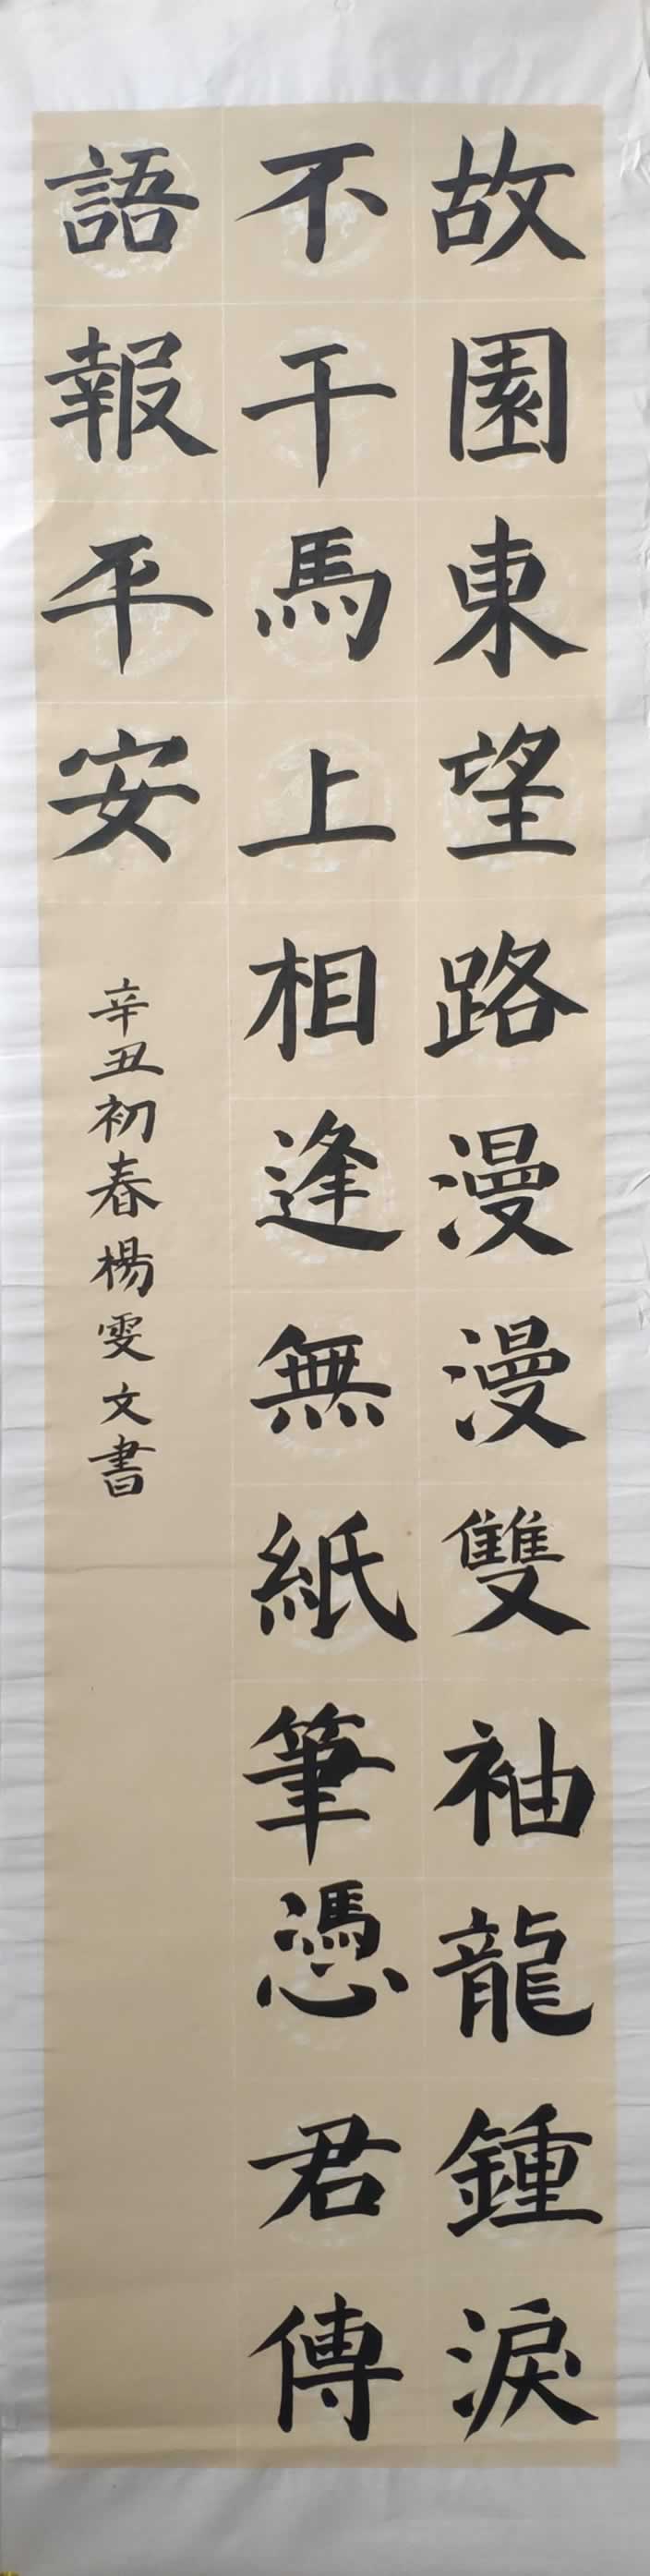 故園東望路漫漫雙袖龍鍾淚
不干馬上相逢無紙筆憑君傳
語報平安
辛丑初春楊雯文書